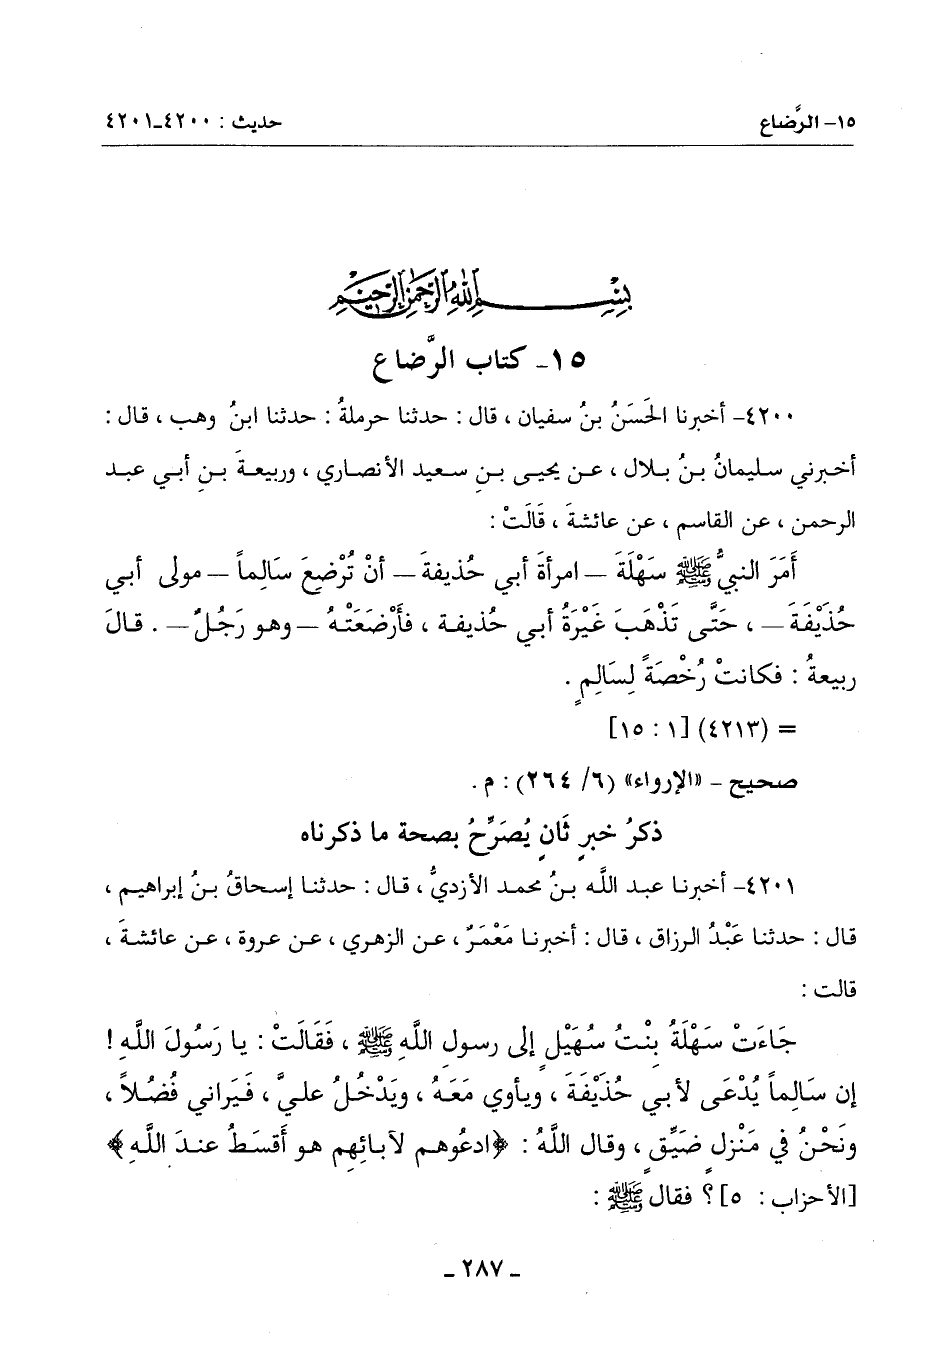 ١٥- الرَّضاع حديث : ٤٢٠٠-٤٢٠١
بِسْمِ اللَّهِ الرَّحْمَنِ الرَّحِيمِ
١٥- كتاب الرَّضاع
٤٢٠٠- أخبرنا الحَسَنُ بنُ سفيان ، قال : حدثنا حرملةُ : حدثنا ابنُ وهب ، قال :
أخبرني سليمانُ بنُ بلال ، عن يحيى بنِ سعيد الأنصاري ، وربيعةَ بنِ أبي عبد
الرحمن ، عن القاسم ، عن عائشةَ ، قَالَتْ :
أَمَرَ النبيُّ ﷺ سَهْلَةَ – امرأةَ أبي حُذيفةَ – أنْ تُرْضِعَ سَالِماً – مولى أبي
حُذَيْفَةَ – ، حَتَّى تَذْهَبَ غَيْرَةُ أبي حُذيفة ، فأَرْضَعَتْهُ – وهو رَجُلٌ – . قالَ
ربيعةُ : فكانتْ رُخْصَةً لِسَالِمٍ .
= (٤٢١٣) [١ : ١٥]
صحيح - «الإرواء» (٦/ ٢٦٤) : م .
ذكرُ خبرٍ ثَانٍ يُصَرِّحُ بصحة ما ذكرناه
٤٢٠١- أخبرنا عبد اللَّه بنُ محمد الأزديُّ ، قال : حدثنا إسحاقُ بنُ إبراهيم ،
قال : حدثنا عَبْدُ الرزاق ، قال : أخبرنا مَعْمَرٌ ، عن الزهري ، عن عروة ، عن عائشةَ ،
قالت :
جَاءَتْ سَهْلَةُ بِنْتُ سُهَيْلٍ إلى رسولِ اللَّهِ ﷺ ، فَقَالَتْ : يا رَسُولَ اللَّهِ !
إن سَالِماً يُدْعَى لأبي حُذَيْفَةَ ، ويأوي مَعَهُ ، ويَدْخُلُ عليَّ ، فَيَراني فُضُلاً ،
ونَحْنُ في مَنْزِلٍ ضَيِّقٍ ، وقال اللَّهُ : ﴿ادعُوهم لآبائِهم هو أَقسَطُ عندَ اللَّهِ﴾
[الأحزاب : ٥] ؟ فقال ﷺ :
- ٢٨٧ -